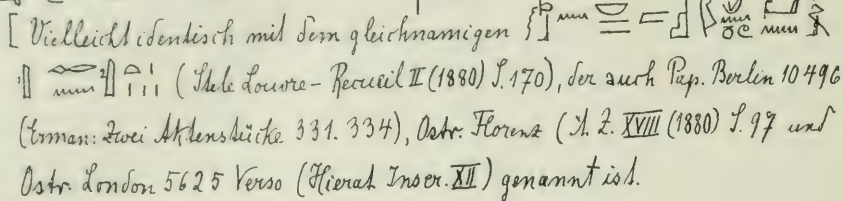 [ Vielleicht identisch mit dem gleichnamigen
(Stele Louvre - Recueil II (1880) S. 170), der auch Pap. Berlin 10496
(Erman: Zwei Aktenstücke 331. 334), Ostr. Florenz (Ä. Z. XVIII (1880) S. 97 und
Ostr. London 5625 Verso (Hierat Inscr. XII) genannt ist.